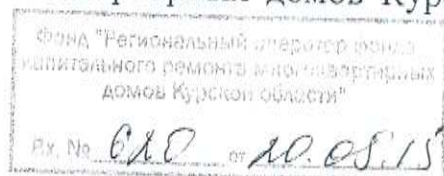 домов Кур
Фонд "Региональный оператор фонда
капитального ремонта многоквартирных
домов Курской области"
Вх. № 620 от 20.05.15